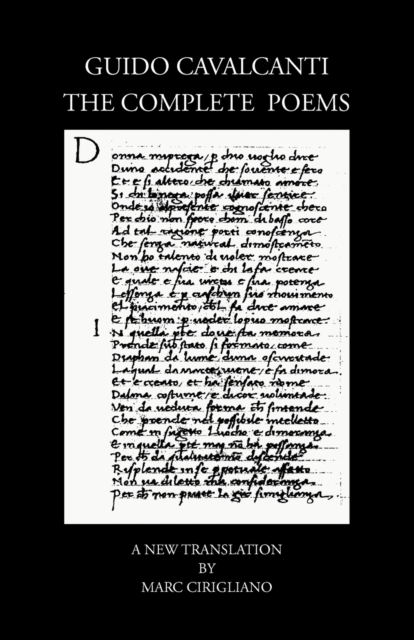 GUIDO CAVALCANTI
THE COMPLETE POEMS
Donna miprega, p chio voglio dire
Duno accidente che sovente e fero
Et e si altero, che chiamato amore.
Si chi lonega possa sentire.
Onde cognoscente chero
Per chio non spero chom di basso core
Ad tal ragione porti conoscenza
Che senza natural dimostrameto
Non ho talento di voler mostrare
La ove nascie e chi lo fa creare
E quale e sua virtus e sua potenza
Lessenza e p suo movimento
El piacimento, chl fa dire amare
E se huom p veder lopuo mostrare.
IN quella pte dove sta memora
Prende suo stato si formato, come
Diaphan da lume, duna oscuritade
Laqual da Marte viene, e fa dimora.
Et e creato, et ha sensato nome
Dalma costume, e di cor voluntade.
Ven da veduta forma ch sintende
Che prende nel possibile intelletto
Come in luocho e dimoranza
E in quella pte mag no ha possanza
Per ch da qualitate no descende
Risplende in se
Non va diletto ma consideranza
Per ch non simiglianza.
A NEW TRANSLATION
BY
MARC CIRIGLIANO